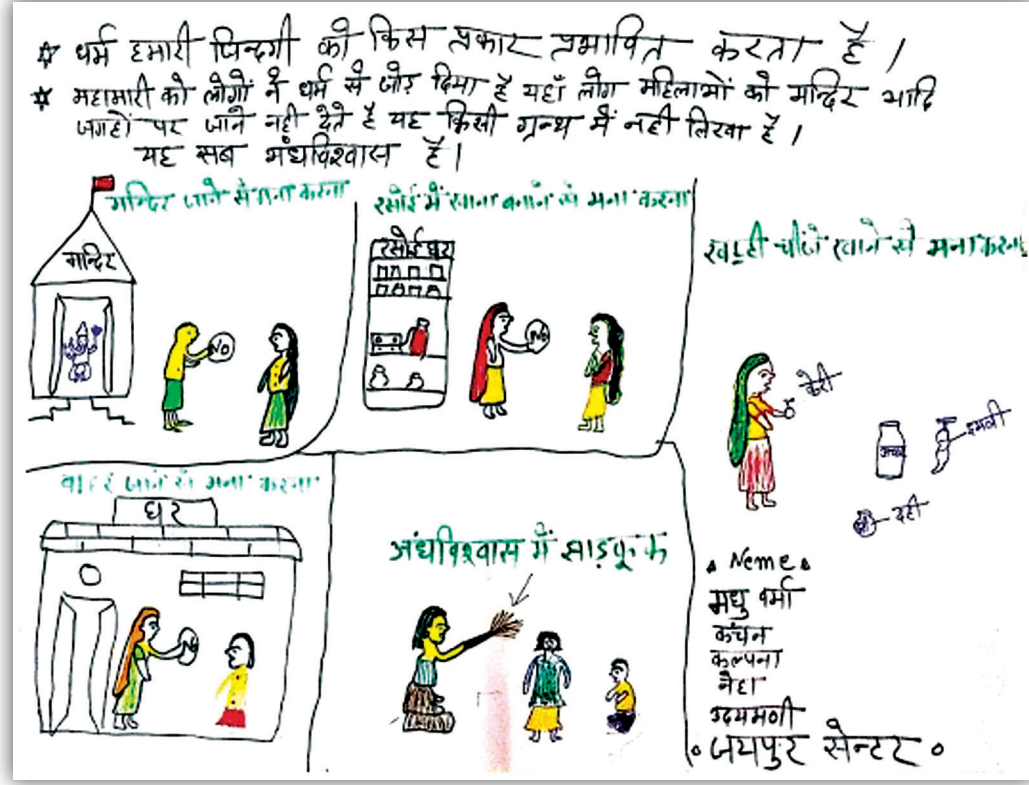 ☆ धर्म हमारी जिन्दगी को किस प्रकार प्रभावित करता है।
☆ महामारी को लोगों ने धर्म से जोड़ दिया है यहाँ लोग महिलाओं को मन्दिर आदि
जगहों पर जाने नही देते है यह किसी ग्रन्थ में नही लिखा है।
यह सब अंधविश्वास है।
मन्दिर जाने से मना करना
मन्दिर
NO
रसोई में खाना बनाने से मना करना
रसोई घर
NO
खट्टी चीजे खाने से मना करना
केरी
अचार
इमली
दही
बाहर जाने से मना करना
घर
No
अंधविश्वास में झाड़फूक
Neme
मधु वर्मा
कंचन
कल्पना
नेहा
उदयमणी
जयपुर सेन्टर